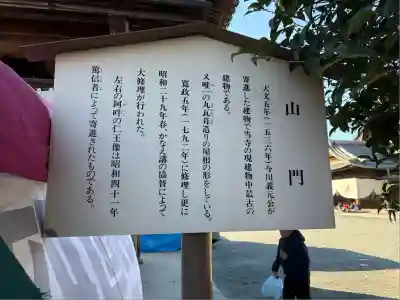 山門
天文五年（一五三六年）今川義元公が
寄進した建物で当寺の現建物中最古の
建物である。
又唯一の丸瓦葺造りの屋根の形をしている。
寛政五年（一七九二年）に修理し更に
昭和二十九年春、かなえ講の協賛によって
大修理が行われた。
左右の阿吽の仁王像は昭和四十一年
篤信者によって寄進されたものである。